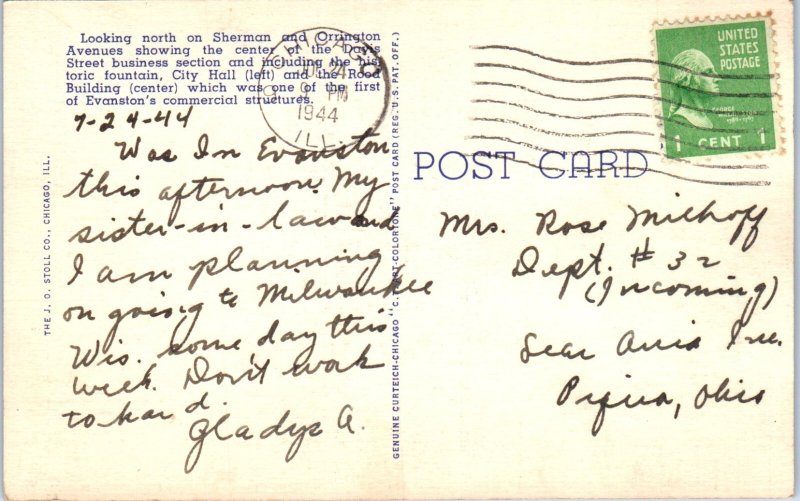 Looking north on Sherman and Orrington
Avenues showing the center of the Davis
Street business section and including the his-
toric fountain, City Hall (left) and the Rood
Building (center) which was one of the first
of Evanston's commercial structures.
7-24-44
Was In Evanston
this afternoon. My
sister-in-law and
I am planning
on going to Milwaukee
Wis. some day this
week. Don't work
to hard.
Gladys A.
THE J. O. STOLL CO., CHICAGO, ILL.
GENUINE CURTEICH-CHICAGO "C. T. ART-COLORTONE" POST CARD (REG. U. S. PAT. OFF.)
CHICAGO
JUL 24
9 PM
1944
ILL.
UNITED
STATES
POSTAGE
GEORGE
WASHINGTON
1789-1797
1 CENT 1
POST CARD
Mrs. Rose
Dept. # 32
(Incoming)
Lear Avia Inc.
Piqua, Ohio